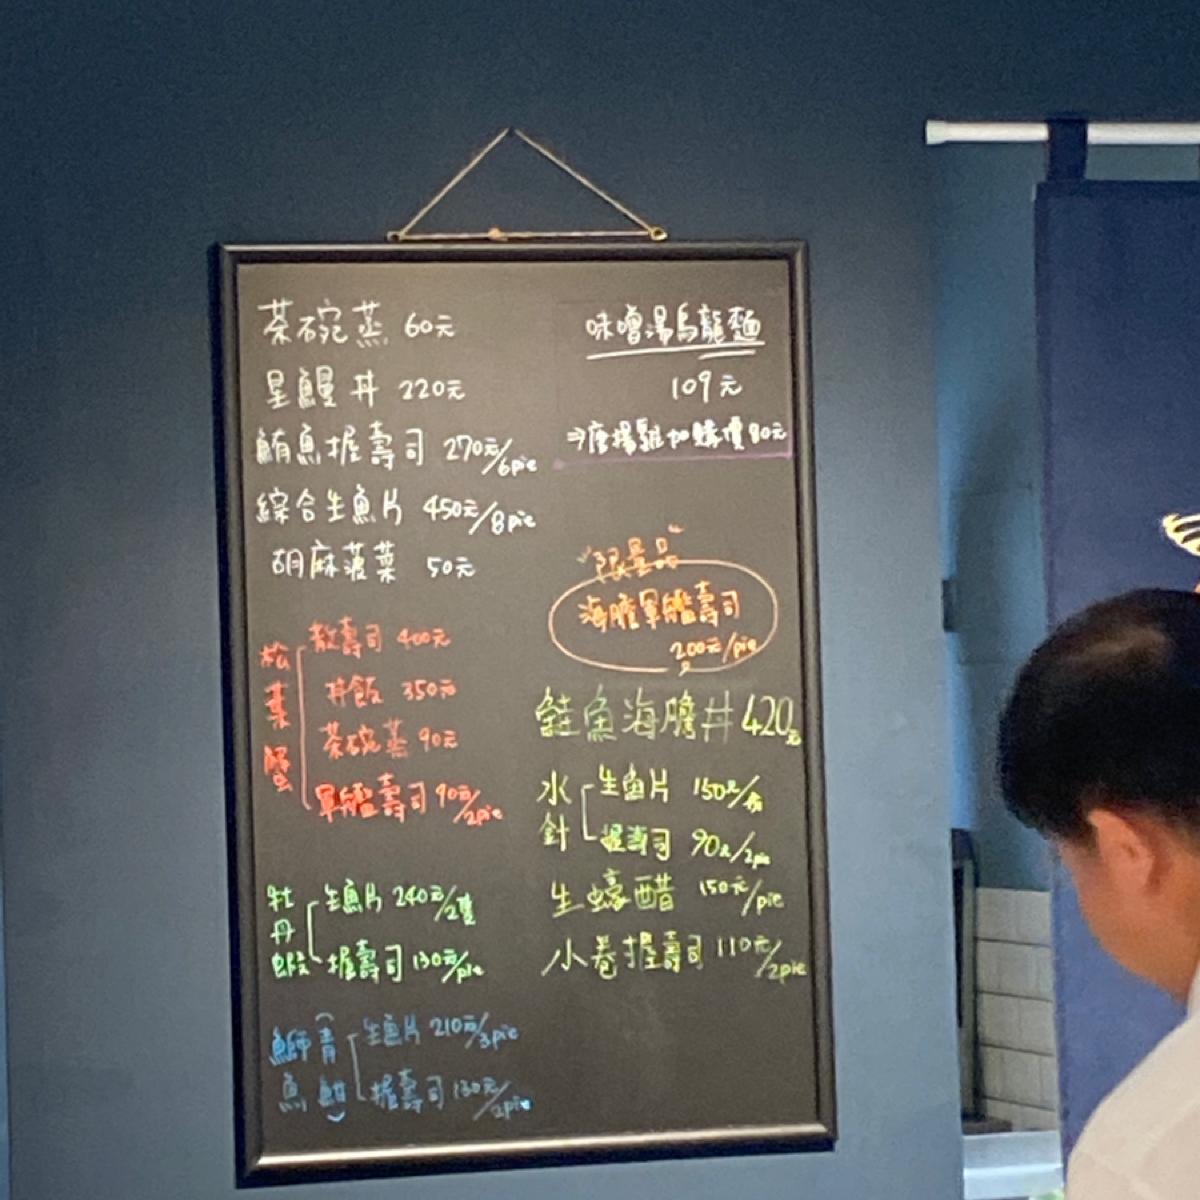 茶碗蒸 60元
星鰻丼 220元
鮪魚握壽司 270元/6pie
綜合生魚片 450元/8pie
胡麻菠菜 50元
松葉蟹
散壽司 400元
丼飯 350元
茶碗蒸 90元
軍艦壽司 90元/2pie
牡丹蝦
生魚片 240元/2隻
握壽司 130元/pie
鰤魚(青魽)
生魚片 210元/3pie
握壽司 130元/2pie
味噌湯烏龍麵
109元
⇒唐揚雞加購價80元
"限量品"
海膽軍艦壽司
200元/pie
鮭魚海膽丼420元
水針
生魚片 150元/
握壽司 90元/2pie
生蠔醋 150元/pie
小卷握壽司 110元/2pie